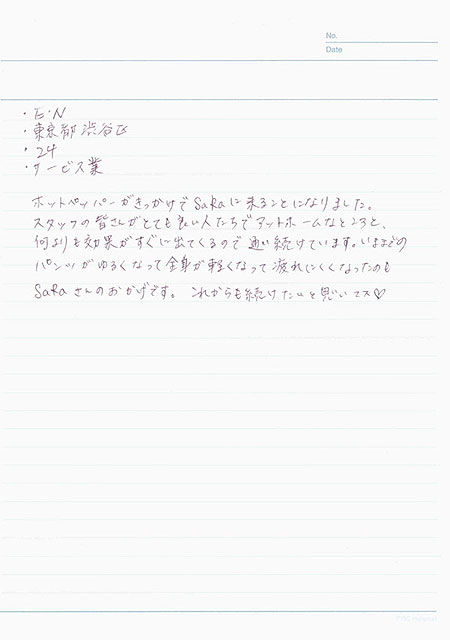 No.
Date
・E・N
・東京都渋谷区
・24
・サービス業
ホットペッパーがきっかけでSaRaに来ることになりました。
スタッフの皆さんがとても良い人たちでアットホームなところと、
何よりも効果がすぐに出てくるので通い続けています。いままでの
パンツがゆるくなって全身が軽くなって疲れにくくなったのも
SaRaさんのおかげです。これからも続けたいと思います♡